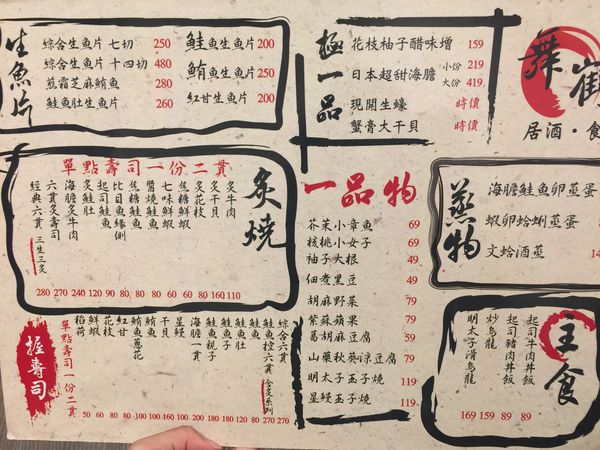 生魚片
綜合生魚片 七切 250
綜合生魚片 十四切 480
煎霜芝麻鮪魚 280
鮭魚肚生魚片 260
鮭魚生魚片 200
鮪魚生魚片 250
紅甘生魚片 200
極一品
花枝柚子醋味增 159
日本超甜海膽 小份 219
大份 419
現開生蠔 時價
蟹膏大干貝 時價
舞
居酒・食
炙燒
單點壽司一份二貫
炙牛肉 110
炙干貝 160
炙花枝 80
焦糖鮮蝦 80
七味鮮蝦 80
醬燒鮭魚 80
焦糖鮭魚 80
比目魚緣側 90
起司鮭魚 80
炙鮭肚 120
海膽炙牛肉 240
六貫炙壽司 270
經典六貫 三生三炙 280
一品物
芥茉小章魚 69
核桃小女子 69
柚子大根 49
佃煮黑豆 49
胡麻野菜 79
紫蘇蘋果 79
葛胡麻豆腐 59
山藥秋葵涼豆腐 79
明太子玉子燒 119
星鰻玉子燒 119
蒸物
海膽鮭魚卵蒸蛋
蝦卵蛤蜊蒸蛋
文蛤酒蒸
主食
起司牛肉丼飯 89
起司豬肉丼飯 89
炒烏龍 159
明太子滑烏龍 169
握壽司
單點壽司一份二貫
綜合六貫 270
鮭魚控六貫 含炙系列 270
鮭魚肚
鮭魚卵
鮭魚子
鮭魚親子
海膽
星鰻
干貝
鮪魚
鮪魚蔥花
紅甘
花枝
鮮蝦 60
稻荷 50